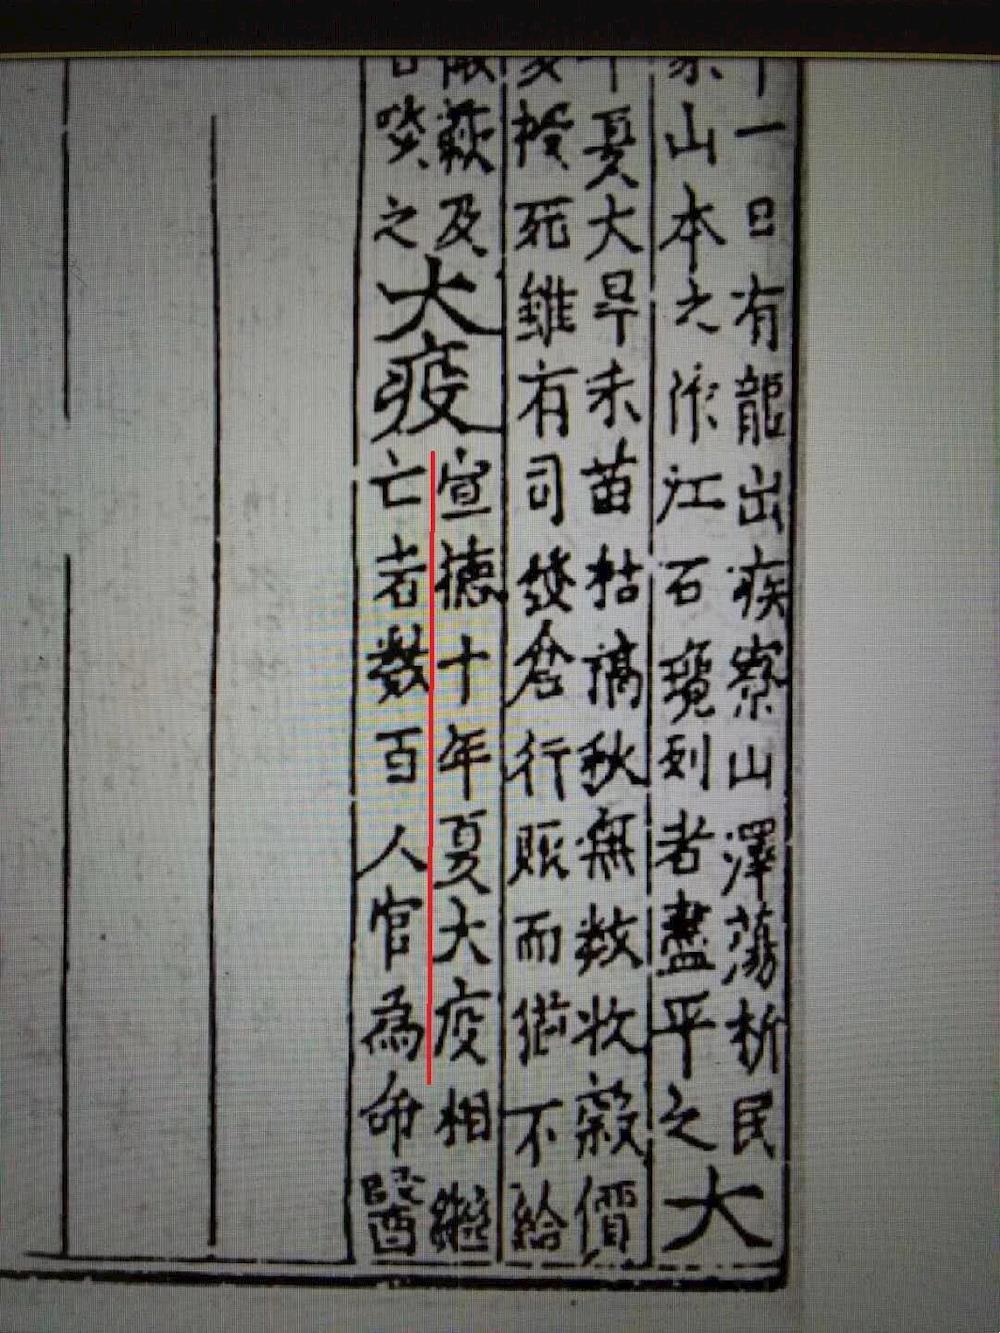 一日有龍出疾寮山澤蕩析民
山本江石列者盡平之
大
年夏大旱禾苗枯槁秋無数收穀價
死雖有司發倉行賑而継不給
蔌及
啖之
大疫
宣德十年夏大疫相繼
亡者数百人官為命醫